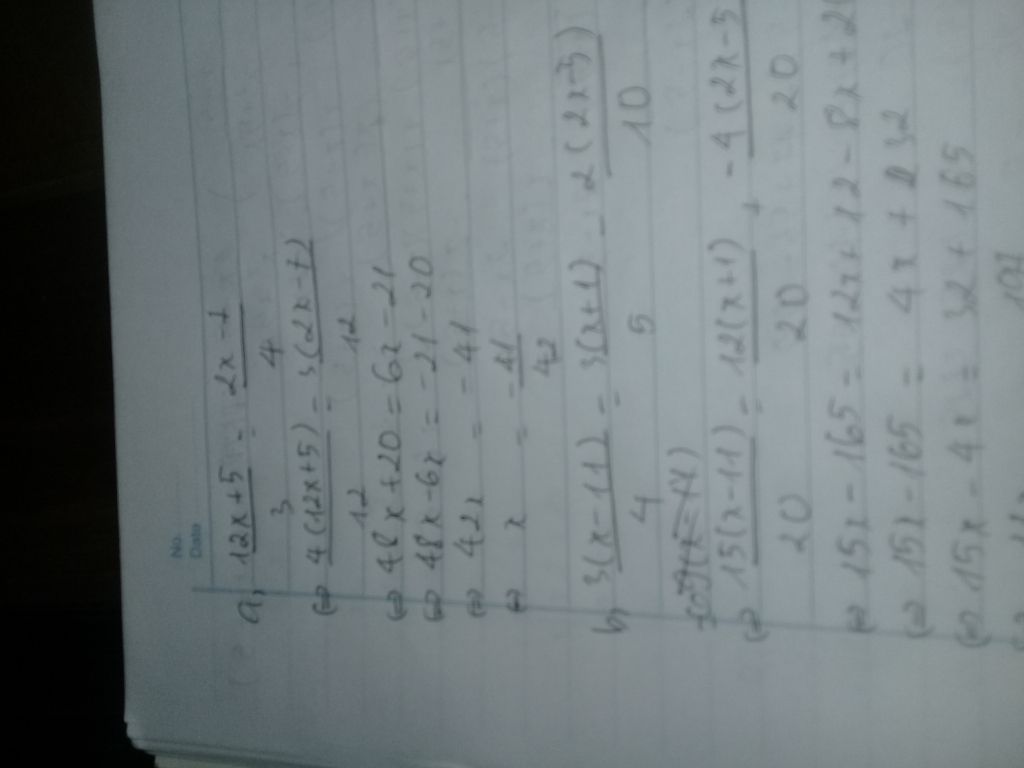 No.
Date
a, (12x+5)/3 = (2x-7)/4
(=) 4(12x+5)/12 = 3(2x-7)/12
(=) 48x+20 = 6x-21
(=) 48x-6x = -21-20
(=) 42x = -41
(=) x = -41/42
b, 3(x-11)/4 = 3(x+1)/5 - 2(2x-5)/10
(=) 15(x-11)/20 = 12(x+1)/20 + -4(2x-5/20
(=) 15x-165 = 12x+12-8x+20
(=) 15x-165 = 4x+32
(=) 15x-4x = 32+165
(=) 11x 197